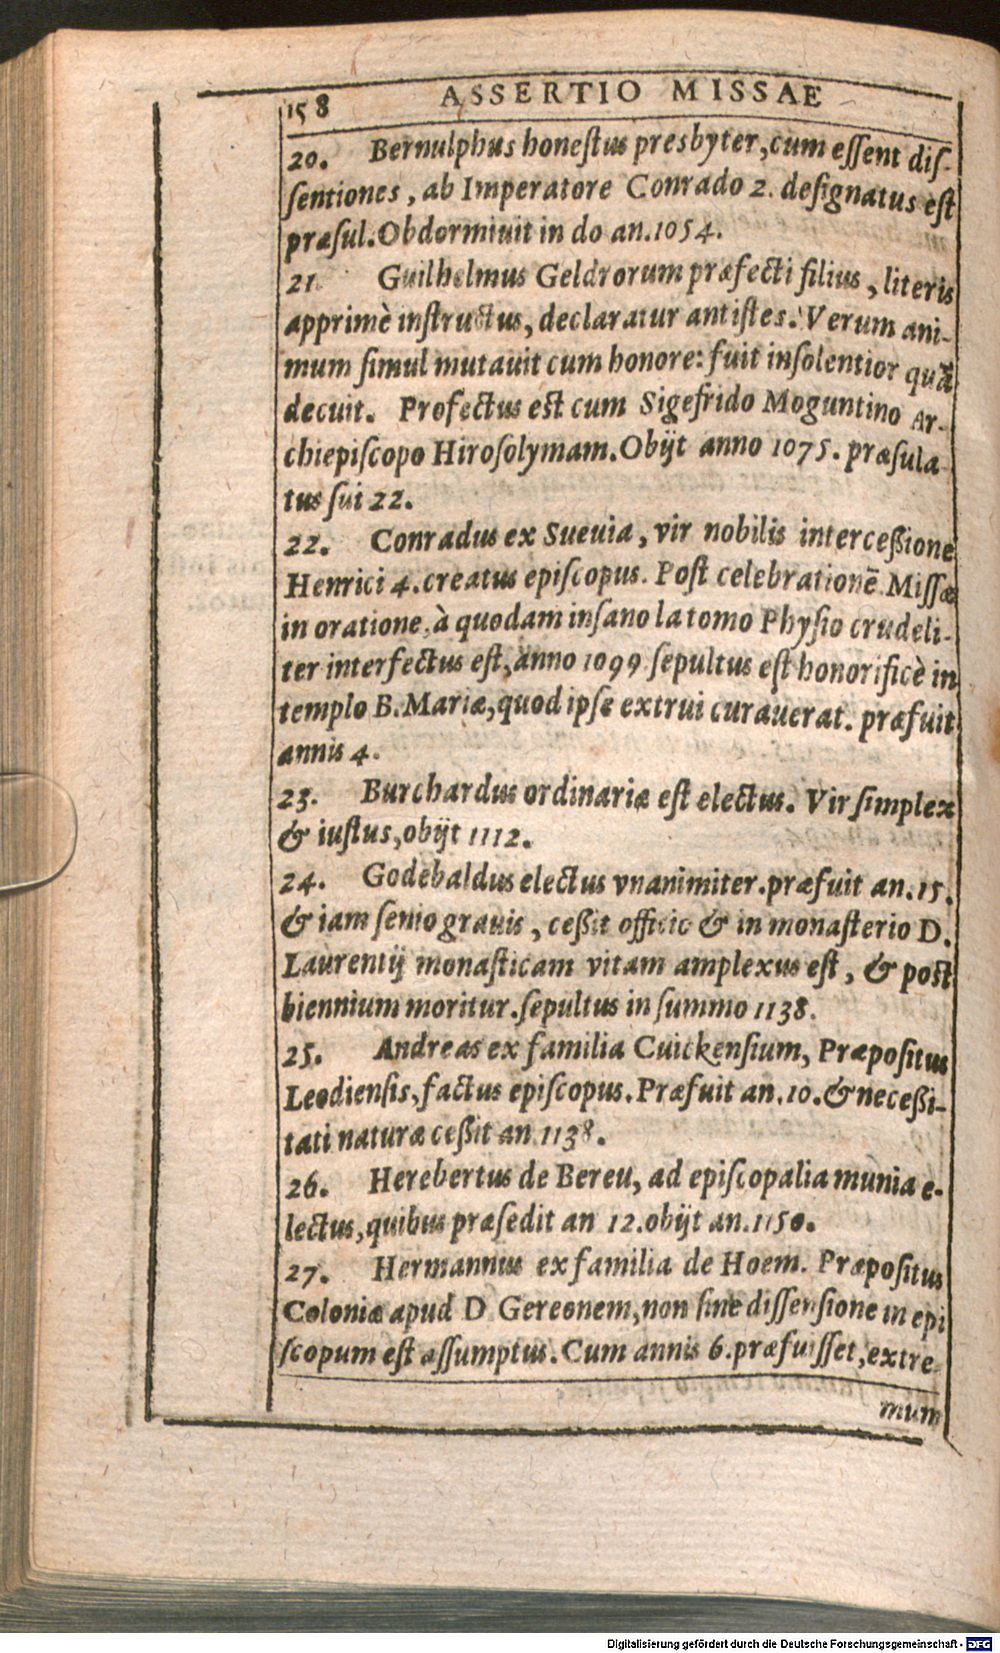 158 ASSERTIO MISSAE
20. Bernulphus honestus presbyter, cum essent dis-
sentiones, ab Imperatore Conrado 2. designatus est
præsul. Obdormiuit in do an. 1054.
21. Guilhelmus Geldrorum præfecti filius, literis
apprimè instructus, declaratur antistes. Verum ani-
mum simul mutauit cum honore: fuit insolentior quã
decuit. Profectus est cum Sigefrido Moguntino Ar-
chiepiscopo Hirosolymam. Obijt anno 1075. præsula-
tus sui 22.
22. Conradus ex Sueuia, vir nobilis intercessione
Henrici 4. creatus episcopus. Post celebrationẽ Missæ
in oratione, à quodam insano latomo Physio crudeli-
ter interfectus est, anno 1099. sepultus est honorificè in
templo B. Mariæ, quod ipse extrui curauerat. præfuit
annis 4.
23. Burchardus ordinariæ est electus. Vir simplex
& iustus, obijt 1112.
24. Godebaldus electus vnanimiter. præfuit an. 15.
& iam senio grauis, cessit officio & in monasterio D.
Laurentij monasticam vitam amplexus est, & post
biennium moritur. sepultus in summo 1138.
25. Andreas ex familia Cuickensium, Præpositus
Leodiensis, factus episcopus. Præfuit an. 10. & necessi-
tati naturæ cessit an 1138.
26. Herebertus de Bereu, ad episcopalia munia e-
lectus, quibus præsedit an 12. obijt an. 1150.
27. Hermannus ex familia de Hoem. Præpositus
Coloniæ apud D Gereonem, non sine dissensione in epi
scopum est assumptus. Cum annis 6. præfuisset, extre-
mum
Digitalisierung gefördert durch die Deutsche Forschungsgemeinschaft - DFG